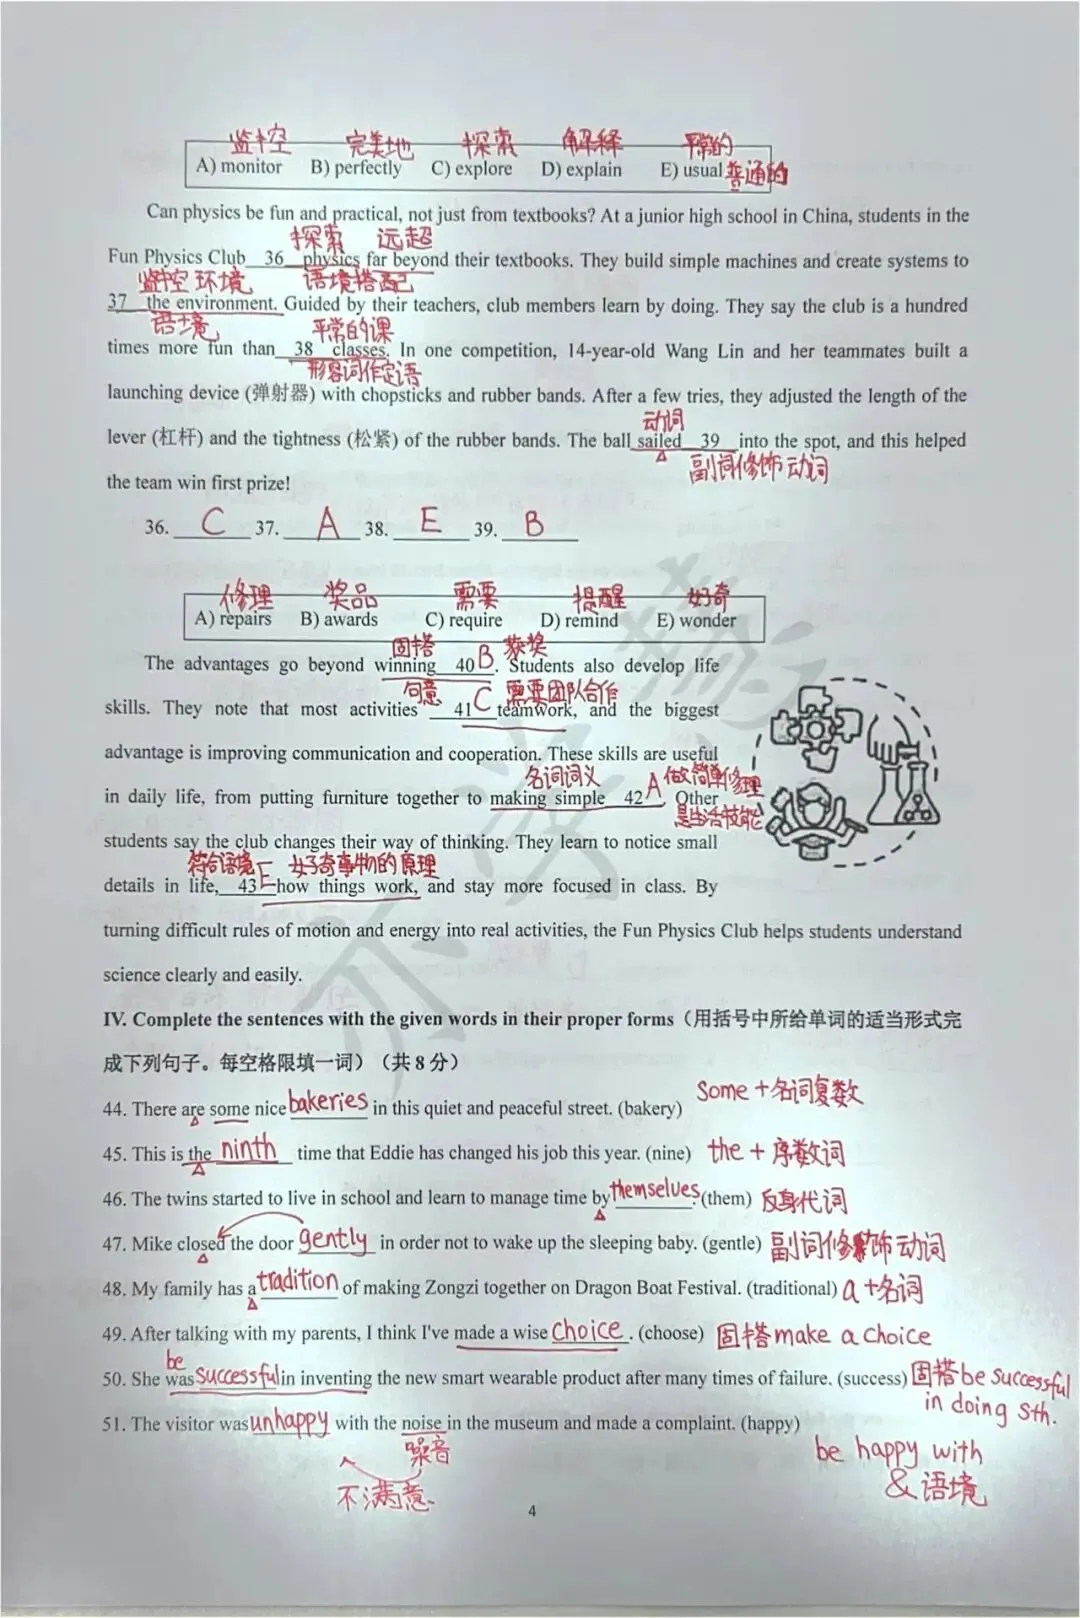 监控 完美地 探索 解释 平常的
A) monitor B) perfectly C) explore D) explain E) usual 普通的
Can physics be fun and practical, not just from textbooks? At a junior high school in China, students in the
探索 远超
Fun Physics Club 36 physics far beyond their textbooks. They build simple machines and create systems to
监控环境 语境搭配
37 the environment. Guided by their teachers, club members learn by doing. They say the club is a hundred
语境 平常的课
times more fun than 38 classes. In one competition, 14-year-old Wang Lin and her teammates built a
形容词作定语
launching device (弹射器) with chopsticks and rubber bands. After a few tries, they adjusted the length of the
动词
lever (杠杆) and the tightness (松紧) of the rubber bands. The ball sailed 39 into the spot, and this helped
副词修饰动词
the team win first prize!
36. C 37. A 38. E 39. B
修理 奖品 需要 提醒 好奇
A) repairs B) awards C) require D) remind E) wonder
固搭 获奖
The advantages go beyond winning 40 B. Students also develop life
句意 需要团队合作
skills. They note that most activities 41 C teamwork, and the biggest
advantage is improving communication and cooperation. These skills are useful
名词词义 做简单修理
in daily life, from putting furniture together to making simple 42 A. Other
是生活技能
students say the club changes their way of thinking. They learn to notice small
符合语境 好奇事物的原理
details in life, 43 E how things work, and stay more focused in class. By
turning difficult rules of motion and energy into real activities, the Fun Physics Club helps students understand
science clearly and easily.
IV. Complete the sentences with the given words in their proper forms（用括号中所给单词的适当形式完
成下列句子。每空格限填一词）（共 8 分）
44. There are some nice bakeries in this quiet and peaceful street. (bakery) some+名词复数
45. This is the ninth time that Eddie has changed his job this year. (nine) the + 序数词
46. The twins started to live in school and learn to manage time by themselves. (them) 反身代词
47. Mike closed the door gently in order not to wake up the sleeping baby. (gentle) 副词修饰动词
48. My family has a tradition of making Zongzi together on Dragon Boat Festival. (traditional) a+名词
49. After talking with my parents, I think I've made a wise choice. (choose) 固搭 make a choice
be
50. She was successful in inventing the new smart wearable product after many times of failure. (success) 固搭 be successful
in doing sth.
51. The visitor was unhappy with the noise in the museum and made a complaint. (happy)
噪音 be happy with
不满意 &语境
4